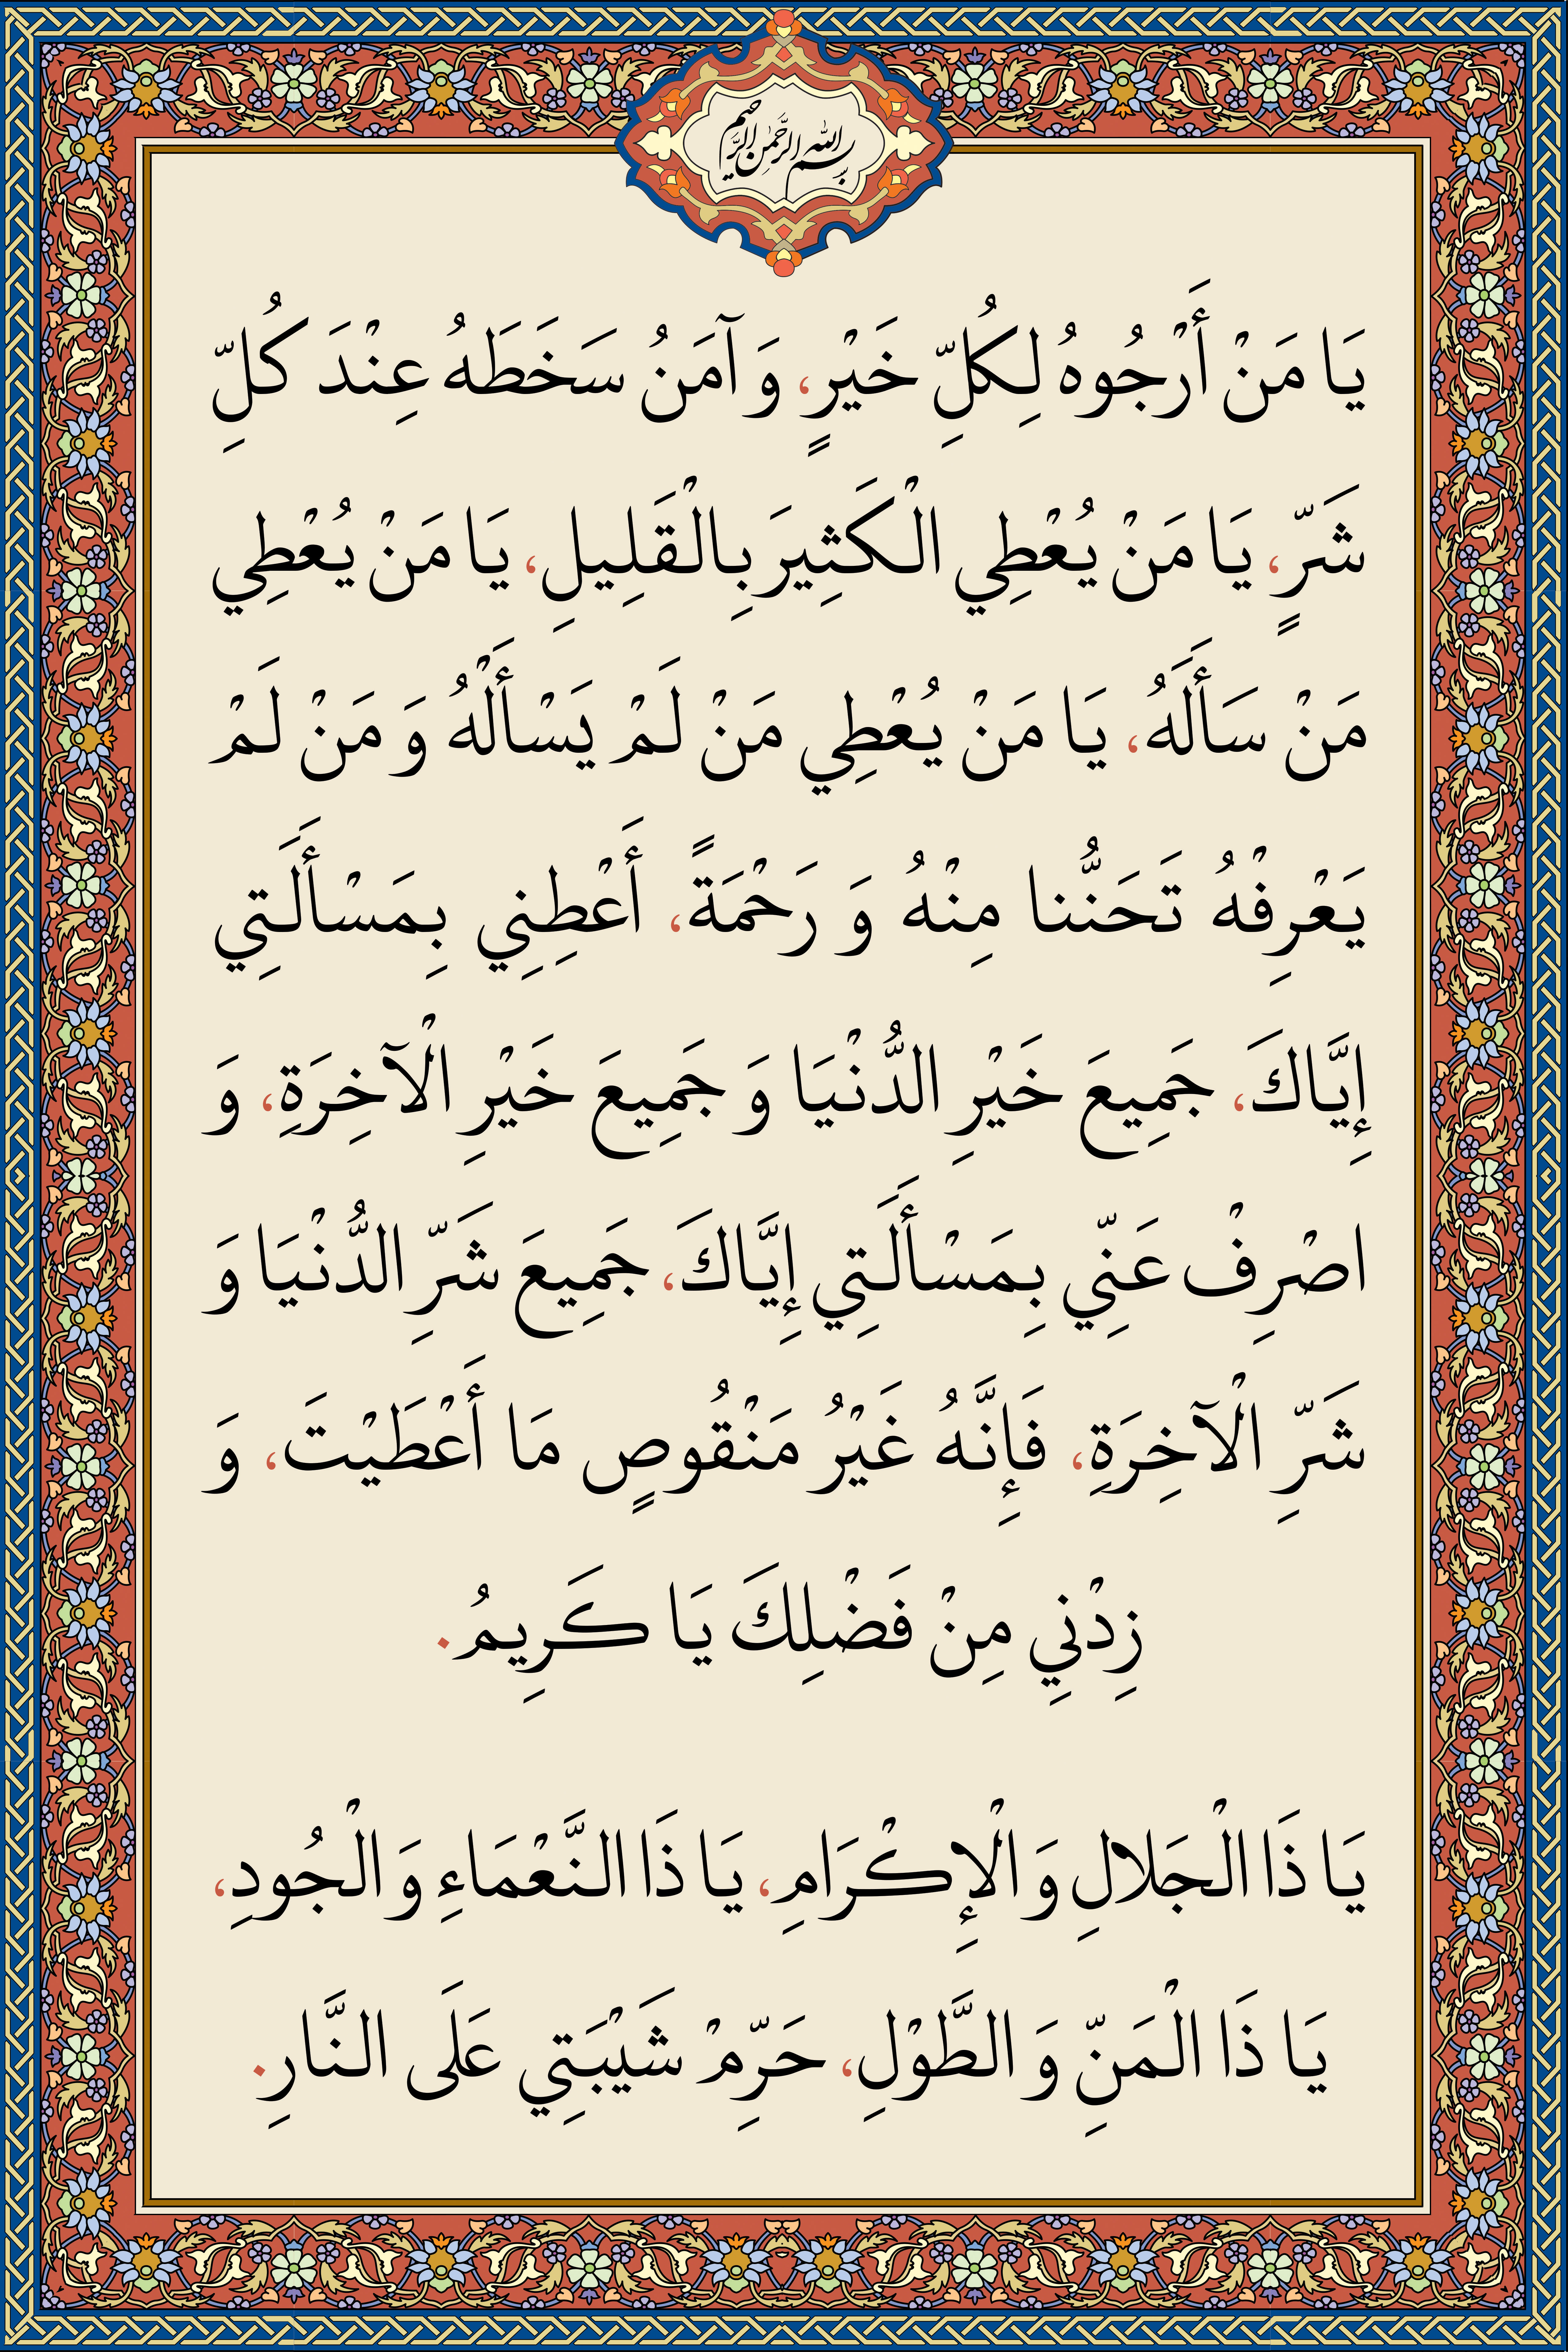 بسم الله الرحمن الرحیم
يَا مَنْ أَرْجُوهُ لِكُلِّ خَيْرٍ، وَ آمَنُ سَخَطَهُ عِنْدَ كُلِّ
شَرٍّ، يَا مَنْ يُعْطِي الْكَثِيرَ بِالْقَلِيلِ، يَا مَنْ يُعْطِي
مَنْ سَأَلَهُ، يَا مَنْ يُعْطِي مَنْ لَمْ يَسْأَلْهُ وَ مَنْ لَمْ
يَعْرِفْهُ تَحَنُّنا مِنْهُ وَ رَحْمَةً، أَعْطِنِي بِمَسْأَلَتِي
إِيَّاكَ، جَمِيعَ خَيْرِ الدُّنْيَا وَ جَمِيعَ خَيْرِ الْآخِرَةِ، وَ
اصْرِفْ عَنِّي بِمَسْأَلَتِي إِيَّاكَ، جَمِيعَ شَرِّ الدُّنْيَا وَ
شَرِّ الْآخِرَةِ، فَإِنَّهُ غَيْرُ مَنْقُوصٍ مَا أَعْطَيْتَ، وَ
زِدْنِي مِنْ فَضْلِكَ يَا كَرِيمُ.
يَا ذَا الْجَلالِ وَ الْإِكْرَامِ، يَا ذَا النَّعْمَاءِ وَ الْجُودِ،
يَا ذَا الْمَنِّ وَ الطَّوْلِ، حَرِّمْ شَيْبَتِي عَلَى النَّارِ.